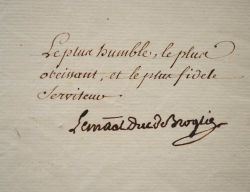 Le plus humble, le plus
obeissant, et le plus fidele
Serviteur.
Le mȧal Duc de Broglie